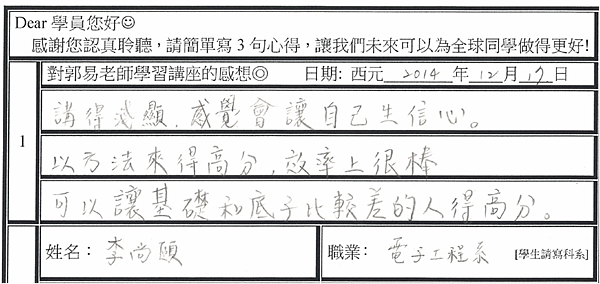 Dear 學員您好☺
感謝您認真聆聽，請簡單寫 3 句心得，讓我們未來可以為全球同學做得更好!
對郭易老師學習講座的感想◎ 日期: 西元 2014 年 12 月 17 日
1
講得淺顯，感覺會讓自己生信心。
以方法來得高分，效率上很棒
可以讓基礎和底子比較差的人得高分。
姓名： 李尚頤 職業： 電子工程系 [學生請寫科系]